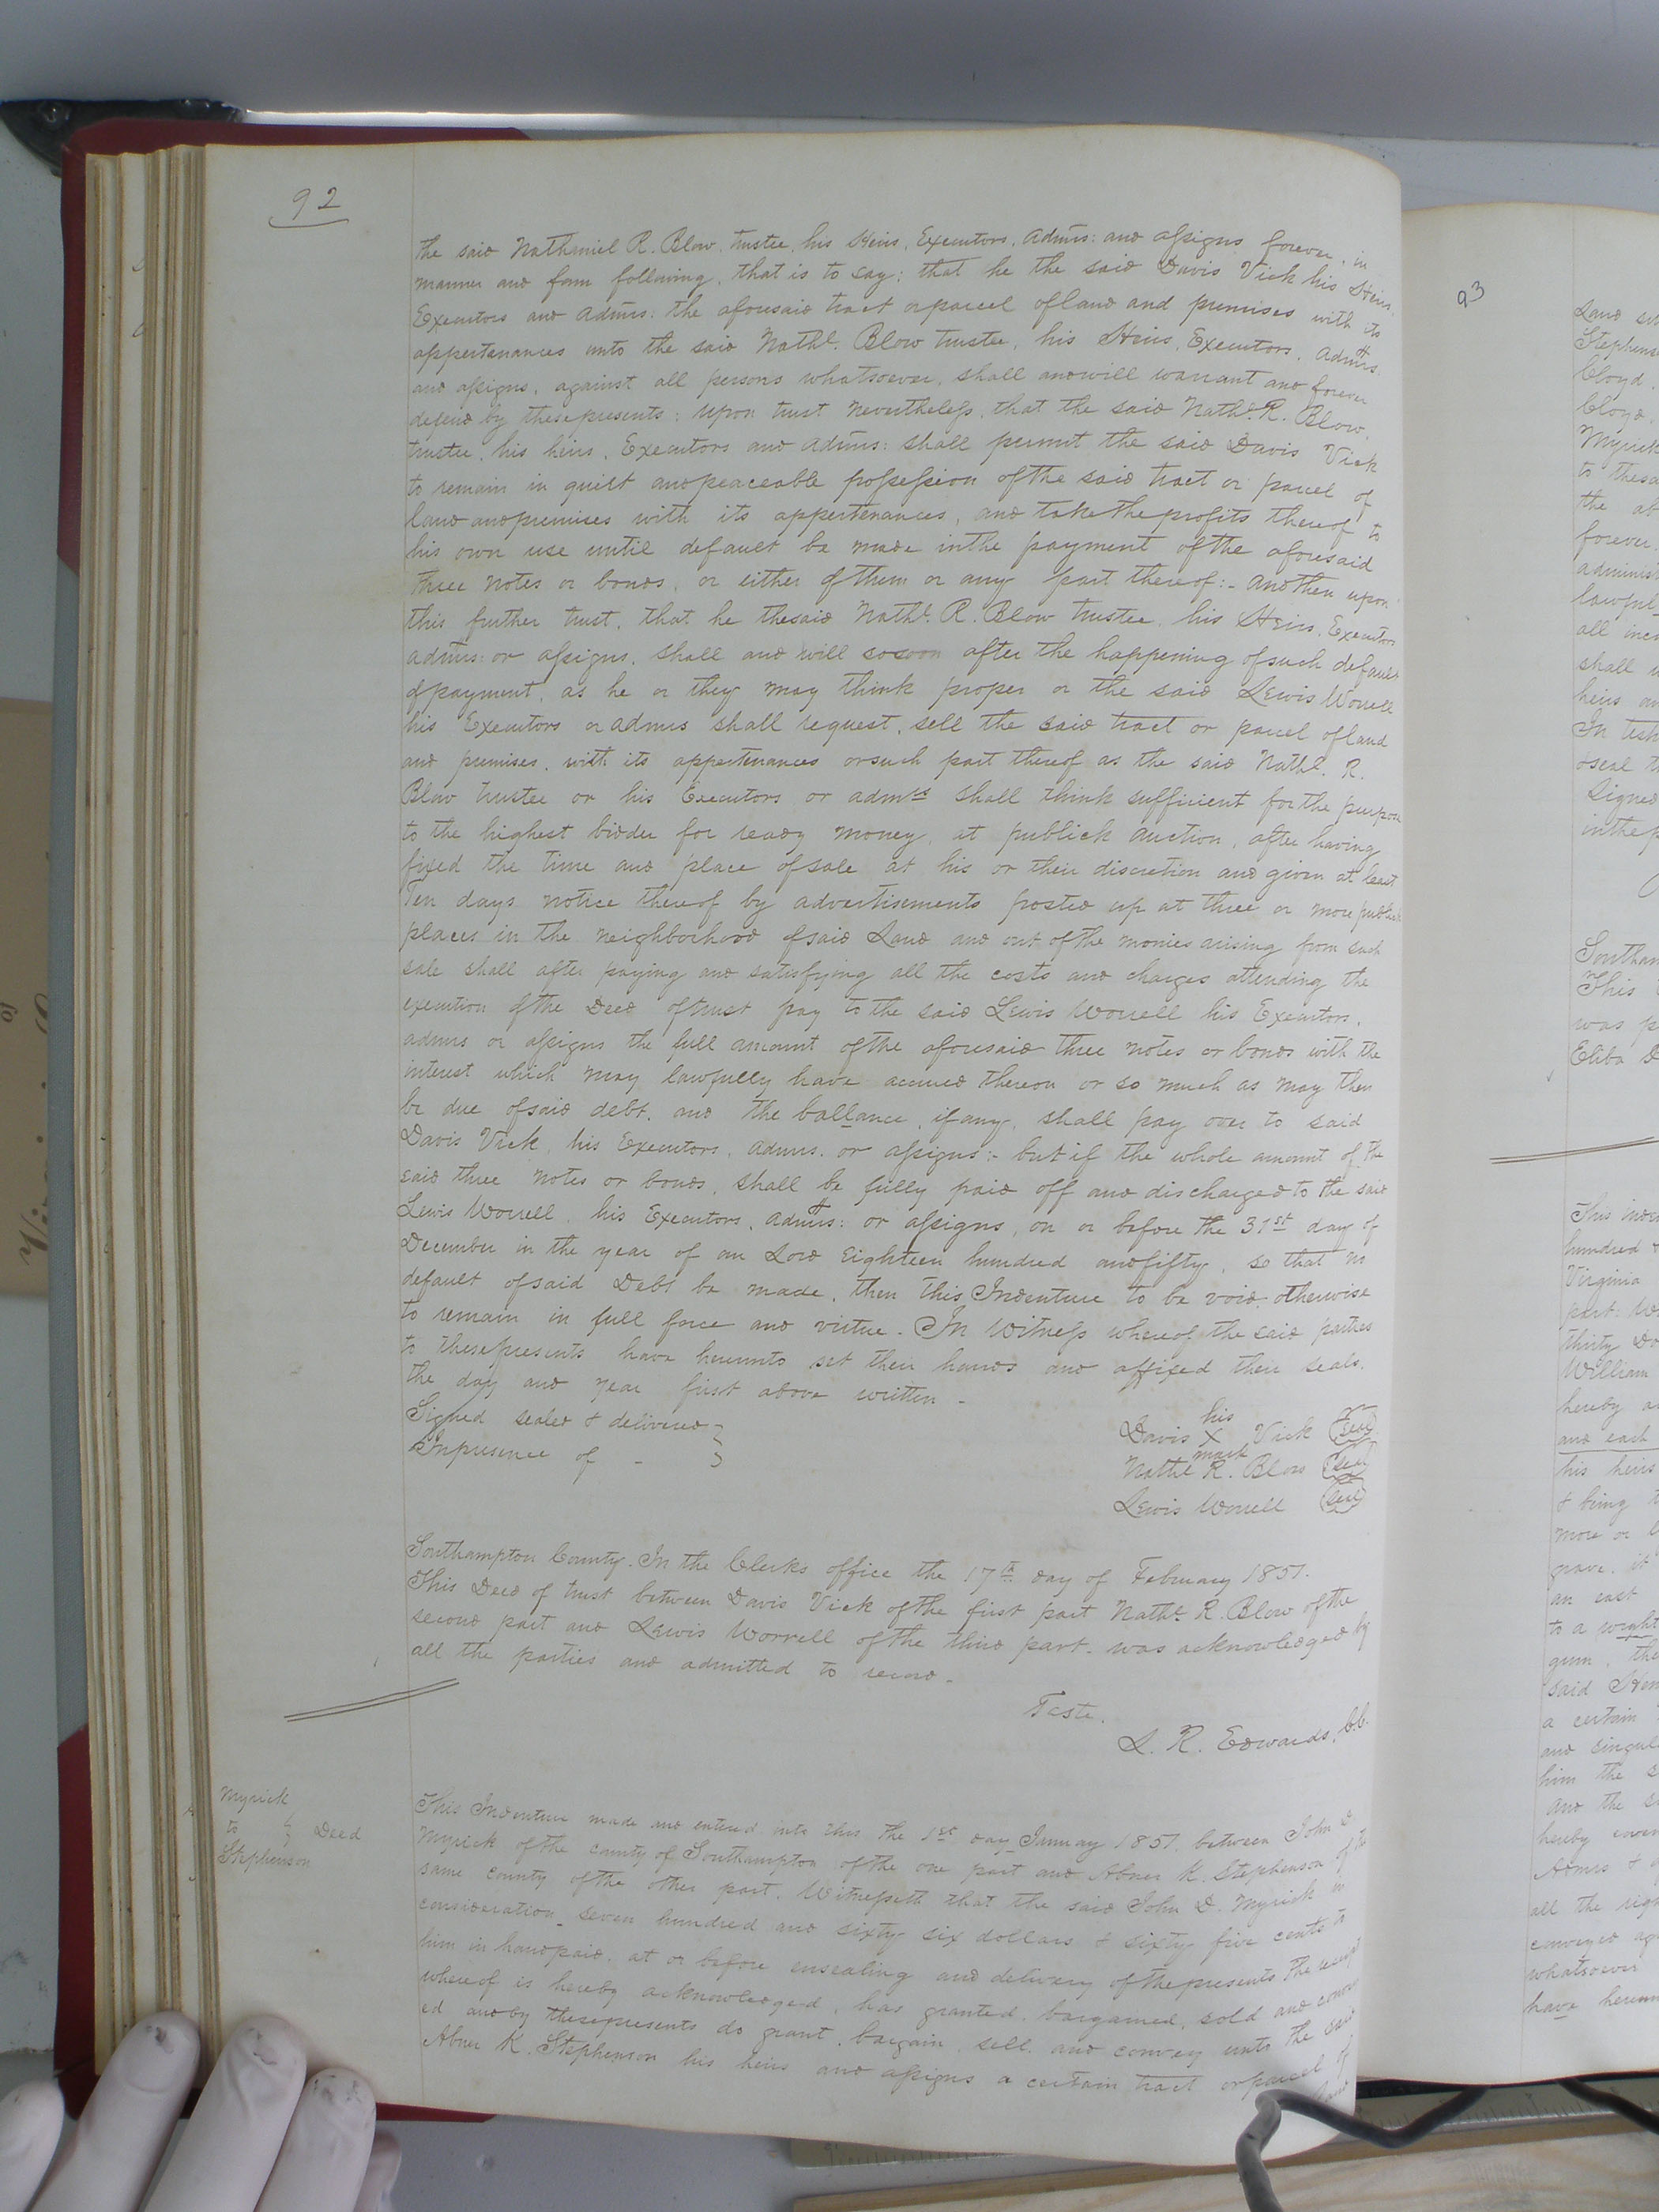 92
the said Nathaniel R. Blow, trustee, his Heirs, Executors, Adms: and assigns forever, in
manner and form following, that is to say: that he the said Davis Vick his Heirs,
Executors and Adms: the aforesaid tract or parcel of land and premises with its
appertenances unto the said Nathl. Blow trustee, his Heirs, Executors, Admrs.
and assigns, against all persons whatsoever, shall and will warrant and forever
defend by these presents: Upon trust nevertheless, that the said Nathl. R. Blow,
trustee, his heirs, Executors and Adms: shall permit the said Davis Vick
to remain in quiet and peaceable possession of the said tract or parcel of
land and premises with its appertenances, and take the profits thereof to
his own use until default be made in the payment of the aforesaid
three notes or bonds, or either of them or any part thereof:- and then upon
this further trust, that he the said Nathl. R. Blow trustee, his Heirs, Executors
adms: or assigns, shall and will so soon after the happening of such default
of payment, as he or they may think proper or the said Lewis Worrell
his Executors or adms shall request, sell the said tract or parcel of land
and premises, with its appertenances or such part thereof as the said Nathl. R.
Blow trustee or his Executors or admrs shall think sufficient for the purpose
to the highest bidder for ready money, at publick auction, after having
fixed the time and place of sale at his or their discretion and given at least
Ten days notice thereof by advertisements posted up at three or more publick
places in the neighborhood of said Land and out of the monies arising from such
sale shall after paying and satisfying all the costs and charges attending the
execution of the Deed of trust pay to the said Lewis Worrell his Executors,
adms or assigns the full amount of the aforesaid three notes or bonds with the
interest which may lawfully have accrued thereon or so much as may then
be due of said debt, and the ballance, if any, shall pay over to said
Davis Vick, his Executors, adms. or assigns:- but if the whole amount of the
said three notes or bonds, shall be fully paid off and discharged to the said
Lewis Worrell, his Executors, Adms: or assigns, on or before the 31st day of
December in the year of our Lord Eighteen hundred and fifty, so that no
default of said Debt be made, then this Indenture to be void, otherwise
to remain in full force and virtue. In Witness whereof the said parties
to these presents have hereunto set their hands and affixed their seals,
the day and year first above written -
Signed sealed & delivered
In presence of -
his
Davis X Vick Seal
mark
Nathl R. Blow Seal
Lewis Worrell Seal
Southampton County. In the Clerks office the 17th day of February 1851.
This Deed of trust between Davis Vick of the first part Nathl. R. Blow of the
second part and Lewis Worrell of the third part was acknowledged by
all the parties and admitted to record.
Teste.
L. R. Edwards, C.C.
Myrick
to Deed
Stephenson
This Indenture made and entered into this the 1st day January 1851. between John D.
Myrick of the County of Southampton of the one part and Abner K. Stephenson of the
same County of the other part, Witnesseth that the said John D. Myrick in
consideration seven hundred and sixty six dollars & sixty five cents to
him in hand paid, at or before ensealing and delivery of the presents the receipt
whereof is hereby acknowledged, has granted, bargained, sold and convey
ed and by these presents do grant, bargain, sell, and convey unto the said
Abner K. Stephenson his heirs and assigns a certain tract or parcel of
land
93
Land
Stephens
Cloyd.
Cloyd,
Myrick
to these
the ab
forever.
administ
lawful
all inc
shall
heirs
In test
Signed
in the p
Southam
This
was p
This inden
hundred
Virginia
part: W
thirty Do
William
hereby a
and each
his heirs
& being
more or
grave, it
an east
to a
gum, the
said Hen
a certain
and singul
him the s
And the s
hereby cove
Admrs &
all the righ
conveyed ag
whatsoever
have hereun